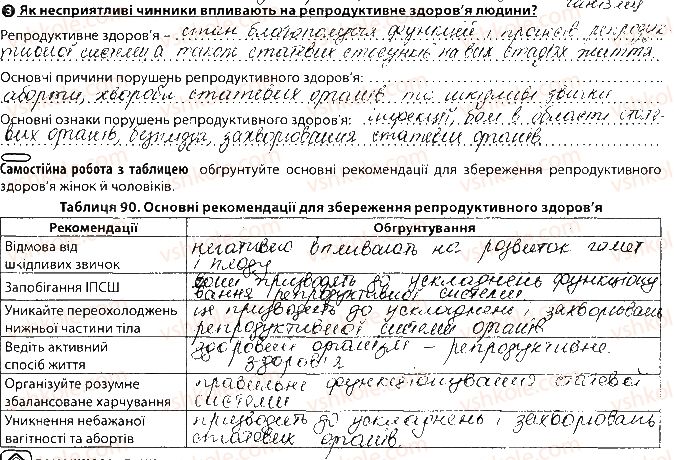 3 Як несприятливі чинники впливають на репродуктивне здоров'я людини?
Репродуктивне здоров'я – стан благополуччя функцій і процесів репродук-
тивної системи а також статевих стосунків на всіх стадіях життя
Основні причини порушень репродуктивного здоров'я:
аборти, хвороби статевих органів та шкідливі звички
Основні ознаки порушень репродуктивного здоров'я: інфекції, болі в області стате-
вих органів, безпліддя, захворювання статевих органів.
Самостійна робота з таблицею обґрунтуйте основні рекомендації для збереження репродуктивного
здоров'я жінок й чоловіків.
Таблиця 90. Основні рекомендації для збереження репродуктивного здоров'я
Рекомендації Обґрунтування
Відмова від негативно впливають на розвиток гамет
шкідливих звичок і плоду
Запобігання ІПСШ вони призводять до ускладнень функціону
вання репродуктивної системи
Уникайте переохолоджень це призводить до ускладнень і захворювань
нижньої частини тіла репродуктивної системи органів
Ведіть активний здоровий організм – репродуктивне
спосіб життя здоров'я
Організуйте розумне правильне функціонування статевої
збалансоване харчування системи
Уникнення небажаної призводить до ускладнень і захворювань
вагітності та абортів статевих органів.